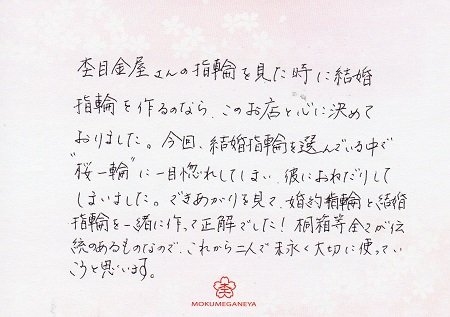 杢目金屋さんの指輪を見た時に結婚
指輪を作るのなら、このお店と心に決めて
おりました。今回、結婚指輪を選んでいる中で
"桜一輪"に一目惚れしてしまい、彼におねだりして
しまいました。できあがりを見て、婚約指輪と結婚
指輪を一緒に作って正解でした！桐箱等全てが伝
統のあるものなので、これから二人で末永く大切に使ってい
こうと思います。
MOKUMEGANEYA